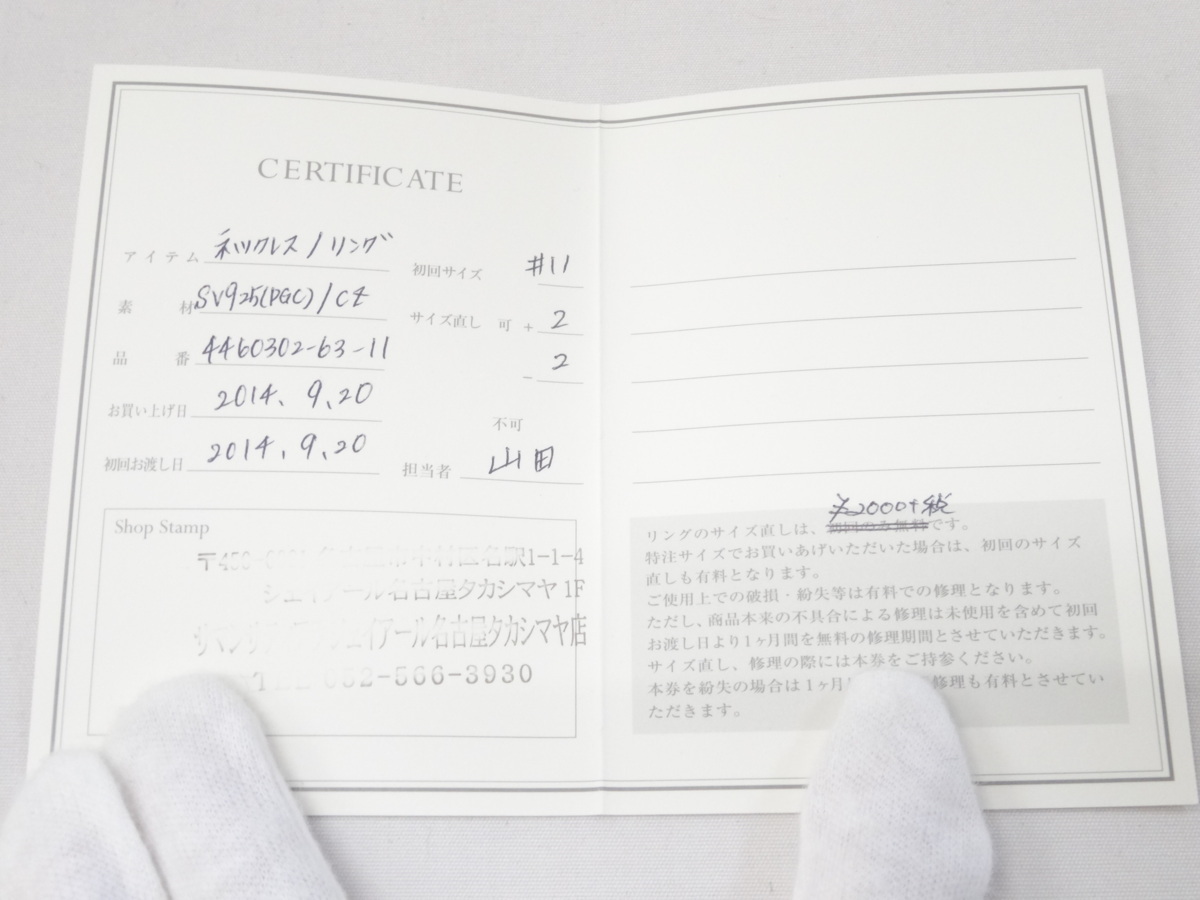 CERTIFICATE
アイテム ネックレス / リング
素材 SV925(PGC)/CZ
品番 4460302-63-11
お買い上げ日 2014. 9.20
初回お渡し日 2014.9.20
初回サイズ #11
サイズ直し 可 + 2
- 2
不可
担当者 山田
Shop Stamp
〒450- 名古屋市中村区名駅1-1-4
ジェイアール名古屋タカシマヤ 1F
ジェイアール名古屋タカシマヤ店
TEL 052-566-3930
¥2000+税
リングのサイズ直しは、初回のみ無料です。
特注サイズでお買いあげいただいた場合は、初回のサイズ
直しも有料となります。
ご使用上での破損・紛失等は有料での修理となります。
ただし、商品本来の不具合による修理は未使用を含めて初回
お渡し日より1ヶ月間を無料の修理期間とさせていただきます。
サイズ直し、修理の際には本券をご持参ください。
本券を紛失の場合は1ヶ月 修理も有料とさせてい
ただきます。